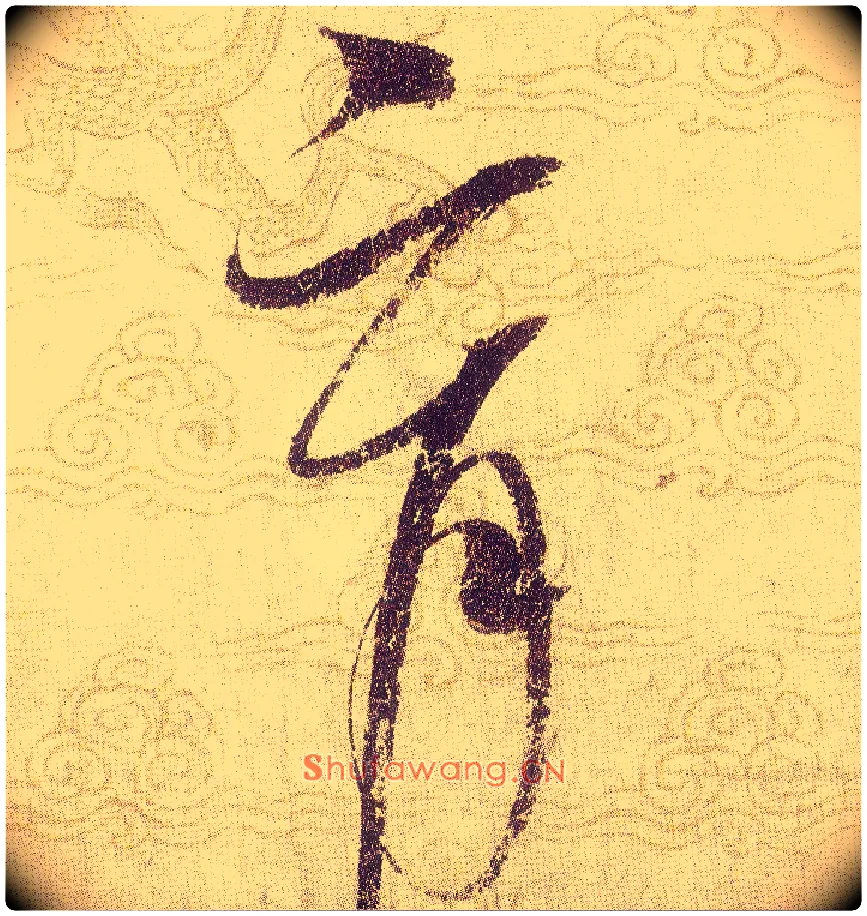 育
Shufawang.cN